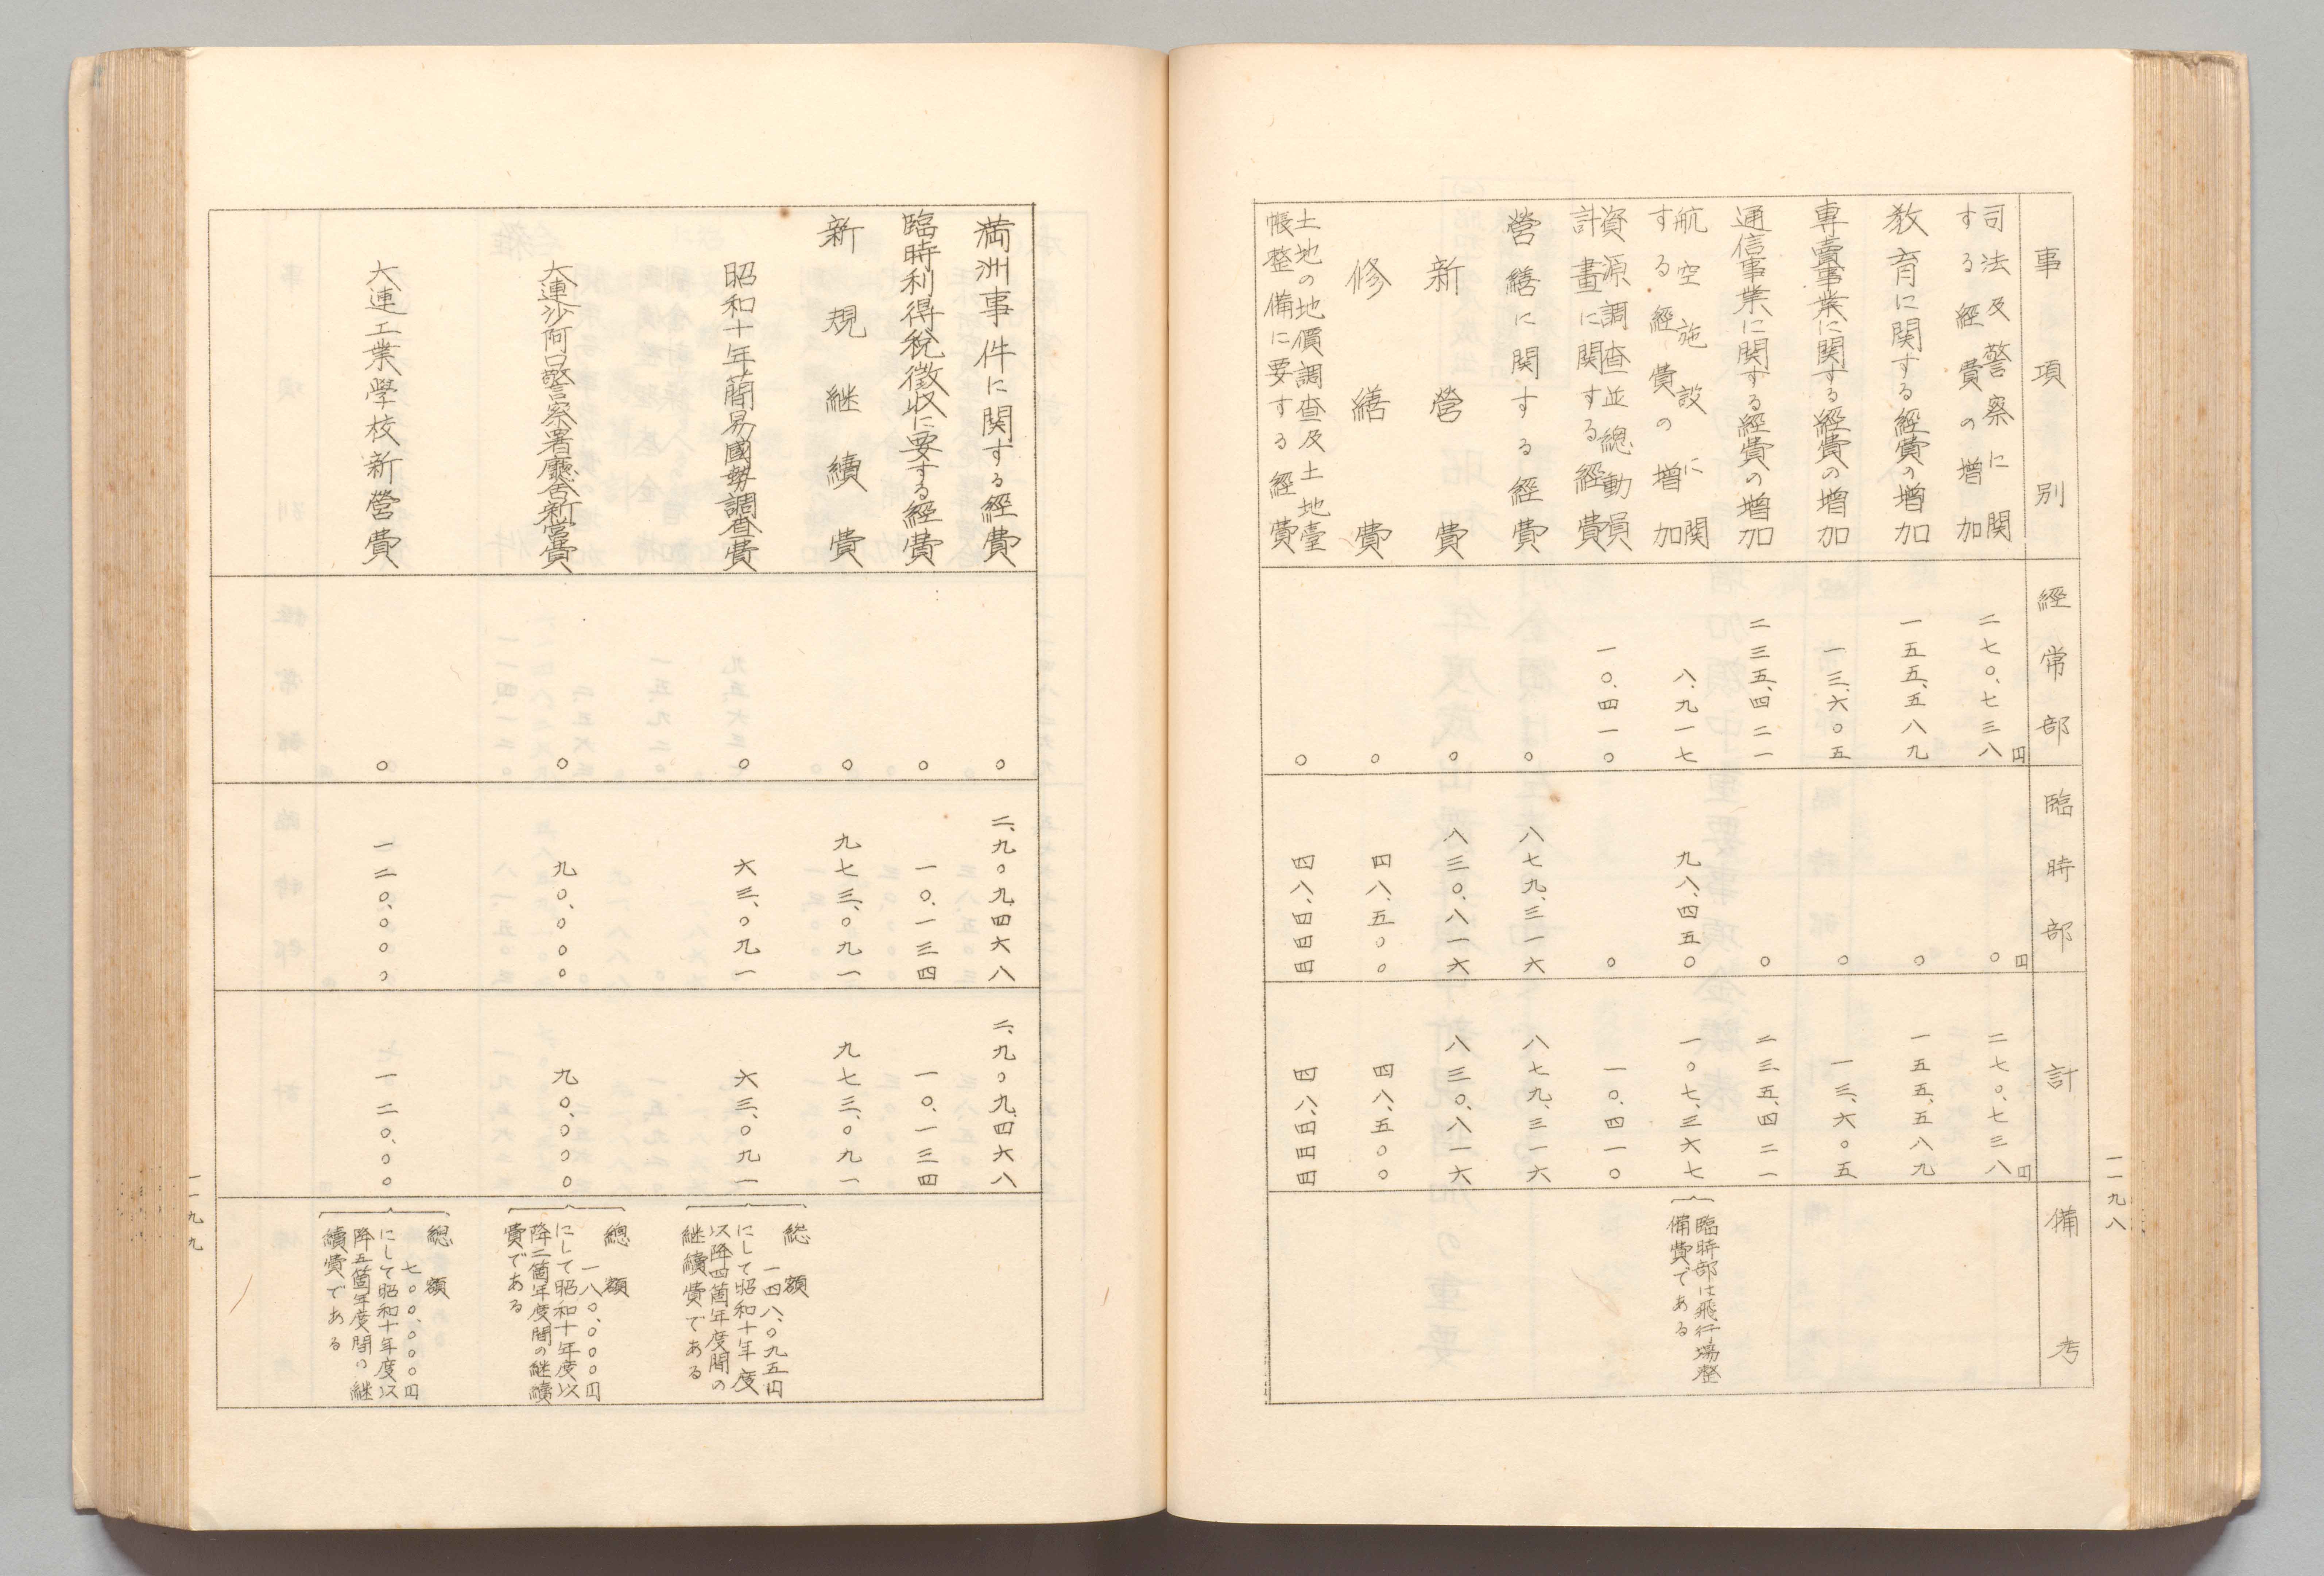 一一九八
事項別
經常部
臨時部
計
備考
司法及警察に関
する經費の増加
二七〇、七三八円
〇円
二七〇、七三八円
教育に関する經費の増加
一五五、五八九
〇
一五五、五八九
専賣事業に関する經費の増加
一三、六〇五
〇
一三、六〇五
通信事業に関する經費の増加
二三五、四二一
〇
二三五、四二一
航空施設に関
する經費の増加
八、九一七
九八、四五〇
一〇七、三六七
臨時部は飛行場整
備費である
資源調査並總動員
計畫に関する經費
一〇、四一〇
〇
一〇、四一〇
營繕に関する經費
〇
八七九、三一六
八七九、三一六
新營費
〇
八三〇、八一六
八三〇、八一六
修繕費
〇
四八、五〇〇
四八、五〇〇
土地の地價調査及土地臺
帳整備に要する經費
〇
四八、四四四
四八、四四四
満洲事件に関する經費
〇
二、九〇九、四六八
二、九〇九、四六八
臨時利得税徴収に要する經費
〇
一〇、一三四
一〇、一三四
新規継續費
〇
九七三、〇九一
九七三、〇九一
昭和十年簡易國勢調査費
〇
六三、〇九一
六三、〇九一
総額
一四八、〇九五円
にして昭和十年度
以降四箇年度間の
継續費である
大連沙河口警察署廳舎新営費
〇
九〇、〇〇〇
九〇、〇〇〇
總額
一八〇、〇〇〇円
にして昭和十年度以
降二箇年度間の継續
費である
大連工業學校新營費
〇
一二〇、〇〇〇
一二〇、〇〇〇
總額
七〇〇、〇〇〇円
にして昭和十年度以
降五箇年度間の継
續費である
一一九九